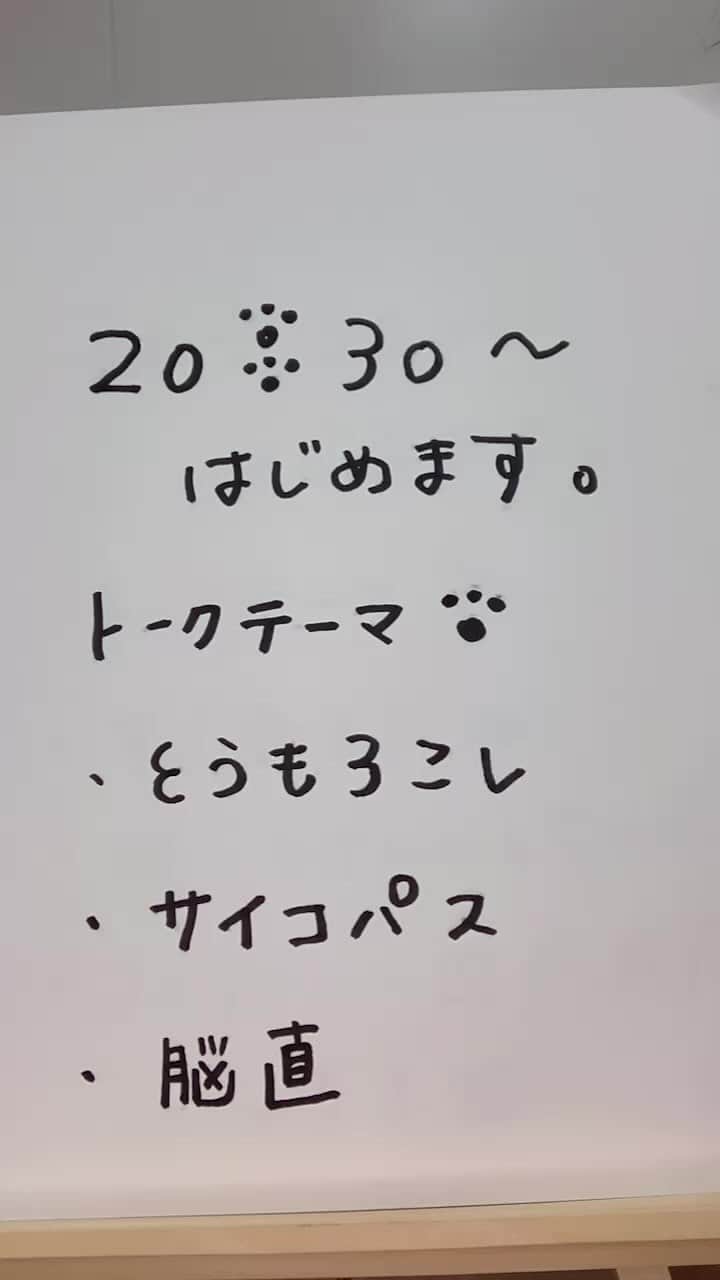 20:30〜
はじめます。
トークテーマ
・とうもろこし
・サイコパス
・脳直